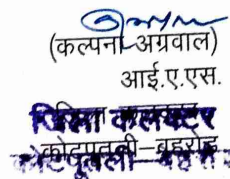 (कल्पना अग्रवाल)
आई.ए.एस.
जिला कलक्टर
कोटपूतली–बहरोड़